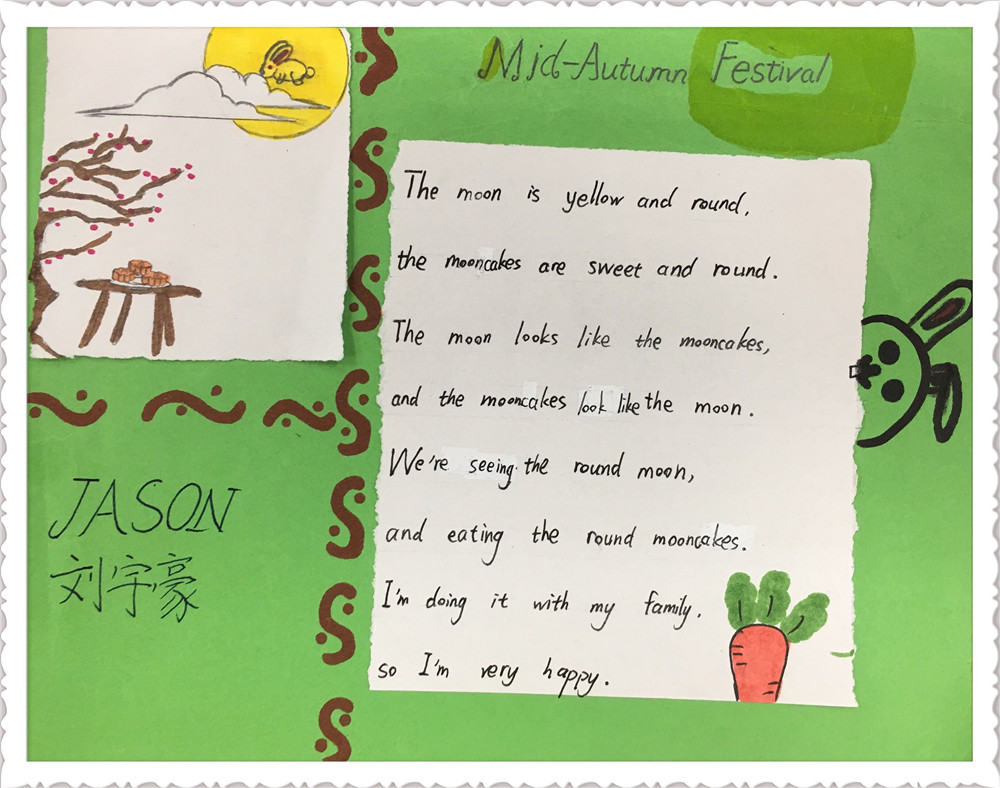 Mid-Autumn Festival
The moon is yellow and round,
the mooncakes are sweet and round.
The moon looks like the mooncakes,
and the mooncakes look like the moon.
We're seeing the round moon,
and eating the round mooncakes.
I'm doing it with my family.
so I'm very happy.
JASON
刘宇豪